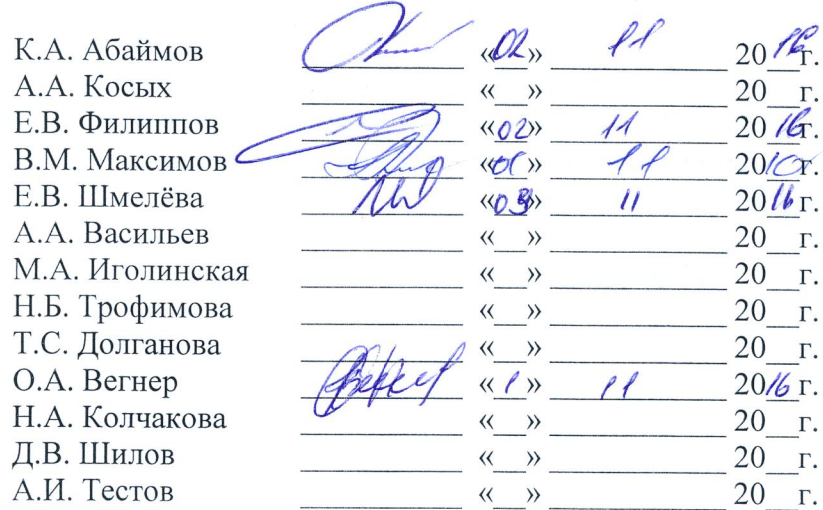 К.А. Абаймов ____________ «02» 11 2016г.
А.А. Косых ____________ «__» ____________ 20__г.
Е.В. Филиппов ____________ «02» 11 2016г.
В.М. Максимов ____________ «01» 11 20 г.
Е.В. Шмелёва ____________ «03» 11 2016г.
А.А. Васильев ____________ «__» ____________ 20__г.
М.А. Иголинская ____________ «__» ____________ 20__г.
Н.Б. Трофимова ____________ «__» ____________ 20__г.
Т.С. Долганова ____________ «__» ____________ 20__г.
О.А. Вегнер ____________ «1» 11 2016г.
Н.А. Колчакова ____________ «__» ____________ 20__г.
Д.В. Шилов ____________ «__» ____________ 20__г.
А.И. Тестов ____________ «__» ____________ 20__г.